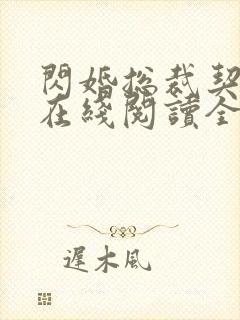 閃婚總裁契
在綫閱讀全
遲木風